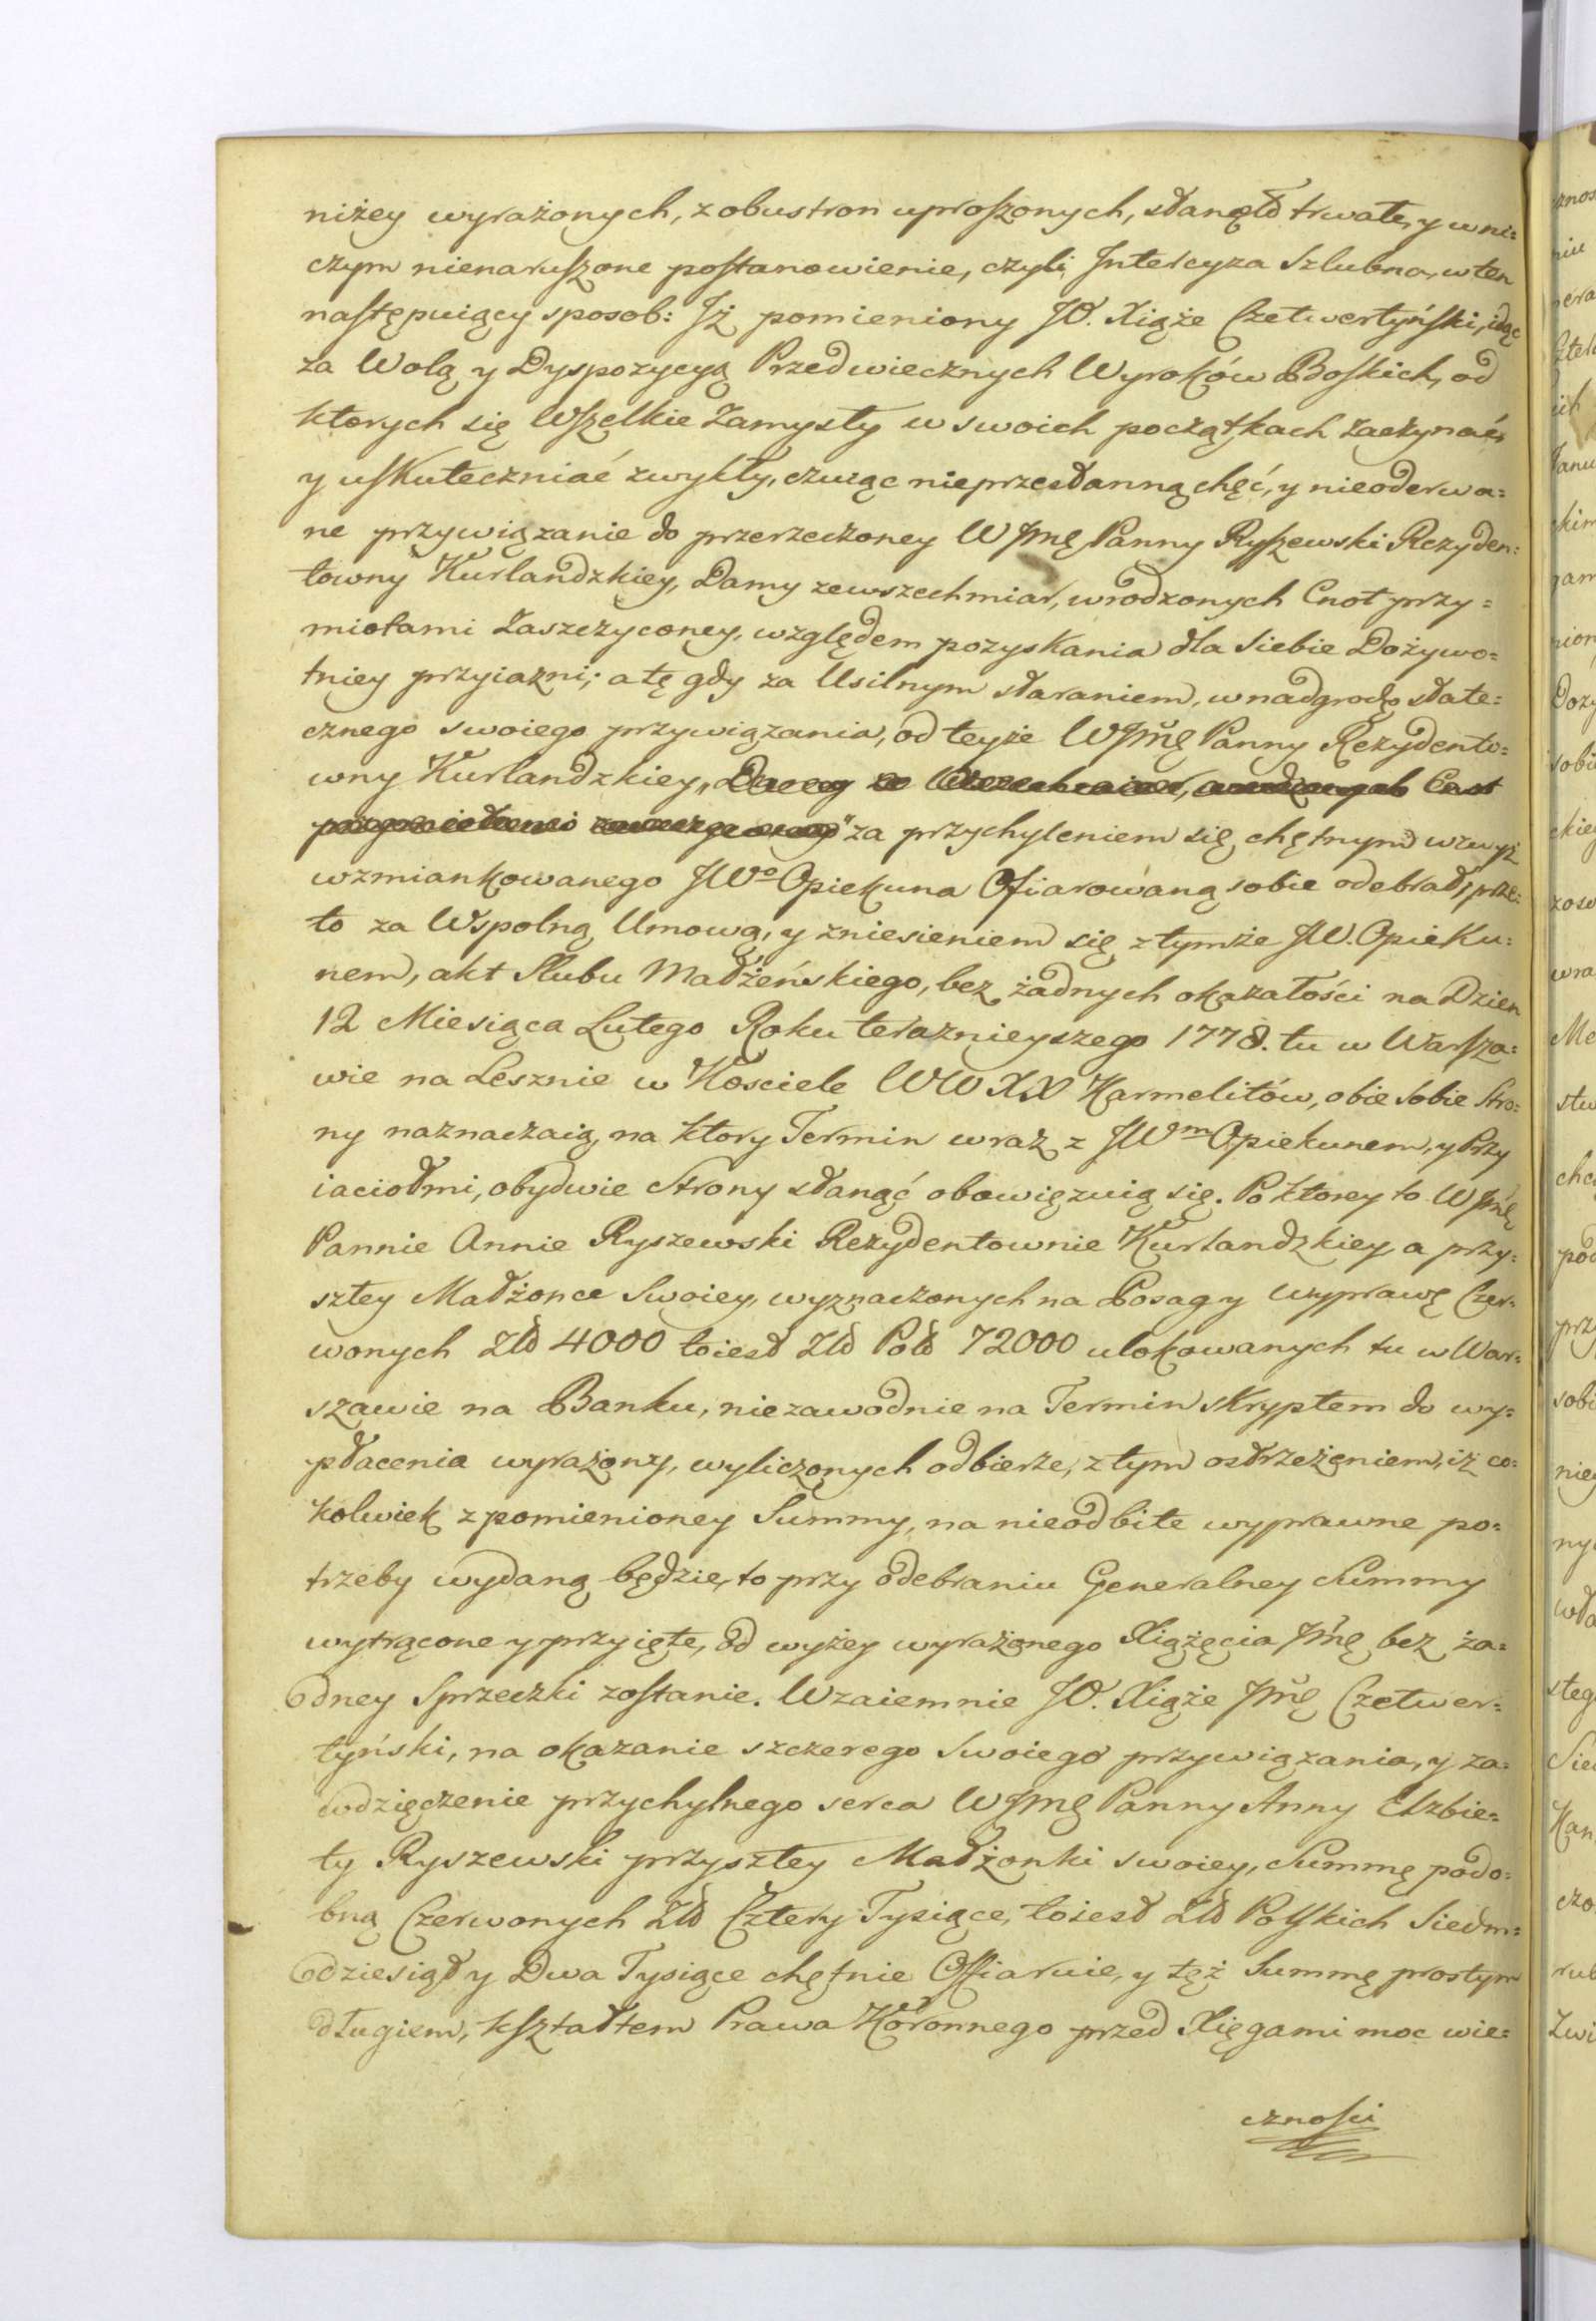 niżey wyrażonych, z obustron uproszonych, stanęło trwałe, y w ni=
czym nienaruszone postanowienie, czyli Intercyza Szlubna, w ten
następuiący sposob: Iż pomieniony JO. Xiąże Czetwertyński, idąc
za Wolą y Dyspozycyą Przedwiecznych Wyroków Boskich, od
ktorych się Wszelkie Zamysły w swoich początkach zaczynać
y uskuteczniać zwykły, czuiąc nieprzestanną chęć, y nieoderwa=
ne przywiązanie do przerzeczoney WJmę Panny Ryszewski Rezyden=
towny Kurlandzkiey, Damy zewszechmiar, wrodzonych Cnot przy=
miotami Zaszczyconey, względem pozyskania dla Siebie Dożywo=
tniey przyiazni; a tę gdy za Usilnym staraniem, w nadgrodę state=
cznego swoiego przywiązania, od teyże WJmę Panny Rezydento=
wny Kurlandzkiey, Damy ze Wszechmiar, wrodzonych Cnot
przymiotami zaszczyconey za przychyleniem się chętnym wzwyż
wzmiankowanego JWo Opiekuna Ofiarowaną sobie odebrał, prze=
to za Wspolną Umową, y zniesieniem się z tymże JW. Opieku=
nem, akt Slubu Małżeńskiego, bez żadnych okazałości na Dzien
12 Miesiąca Lutego Roku teraznieyszego 1778. tu w Warsza=
wie na Lesznie w Kosciele WW XX Karmelitów, obie Sobie Stro=
ny naznaczaią, na ktory Termin wraz z JWm Opiekunem, y Przy
iaciołmi, obydwie Strony stanąć obowięzuią się. Po ktorey to WJmę
Pannie Annie Ryszewski Rezydentownie Kurlandzkiey, a przy=
szłey Małżonce Swoiey, wyznaczonych na Posag y wyprawę Czer=
wonych Złł 4000 to iest Złł Poll 72000 ulokowanych tu w War=
szawie na Banku, niezawodnie na Termin skryptem do wy=
płacenia wyrażony, wyliczonych odbierze, z tym ostrzeżeniem, iż co=
kolwiek z pomienioney Summy, na nieodbite wyprawne po=
trzeby wydaną będzie, to przy odebraniu Generalney Summy
wytrącone y przyięte, od wyżey wyrażonego Xiążęcia Jmę bez ża=
dney Sprzeczki zostanie. Wzaiemnie JO. Xiąże Jmę Czetwer=
tyński, na okazanie szczerego Swoiego przywiązania, y za=
wdzięczenie przychylnego serca WJmę Panny Anny Elzbie=
ty Ryszewski przyszłey Małżonki swoiey, Summę podo=
bną Czerwonych Złł Cztery Tysiące, to iest Złł Polskich Siedm=
dziesiąt y Dwa Tysiące chętnie Offiaruie, y tęż Summę prostym
długiem, kształtem Prawa Koronnego przed Xięgami moc wie=
cznosci